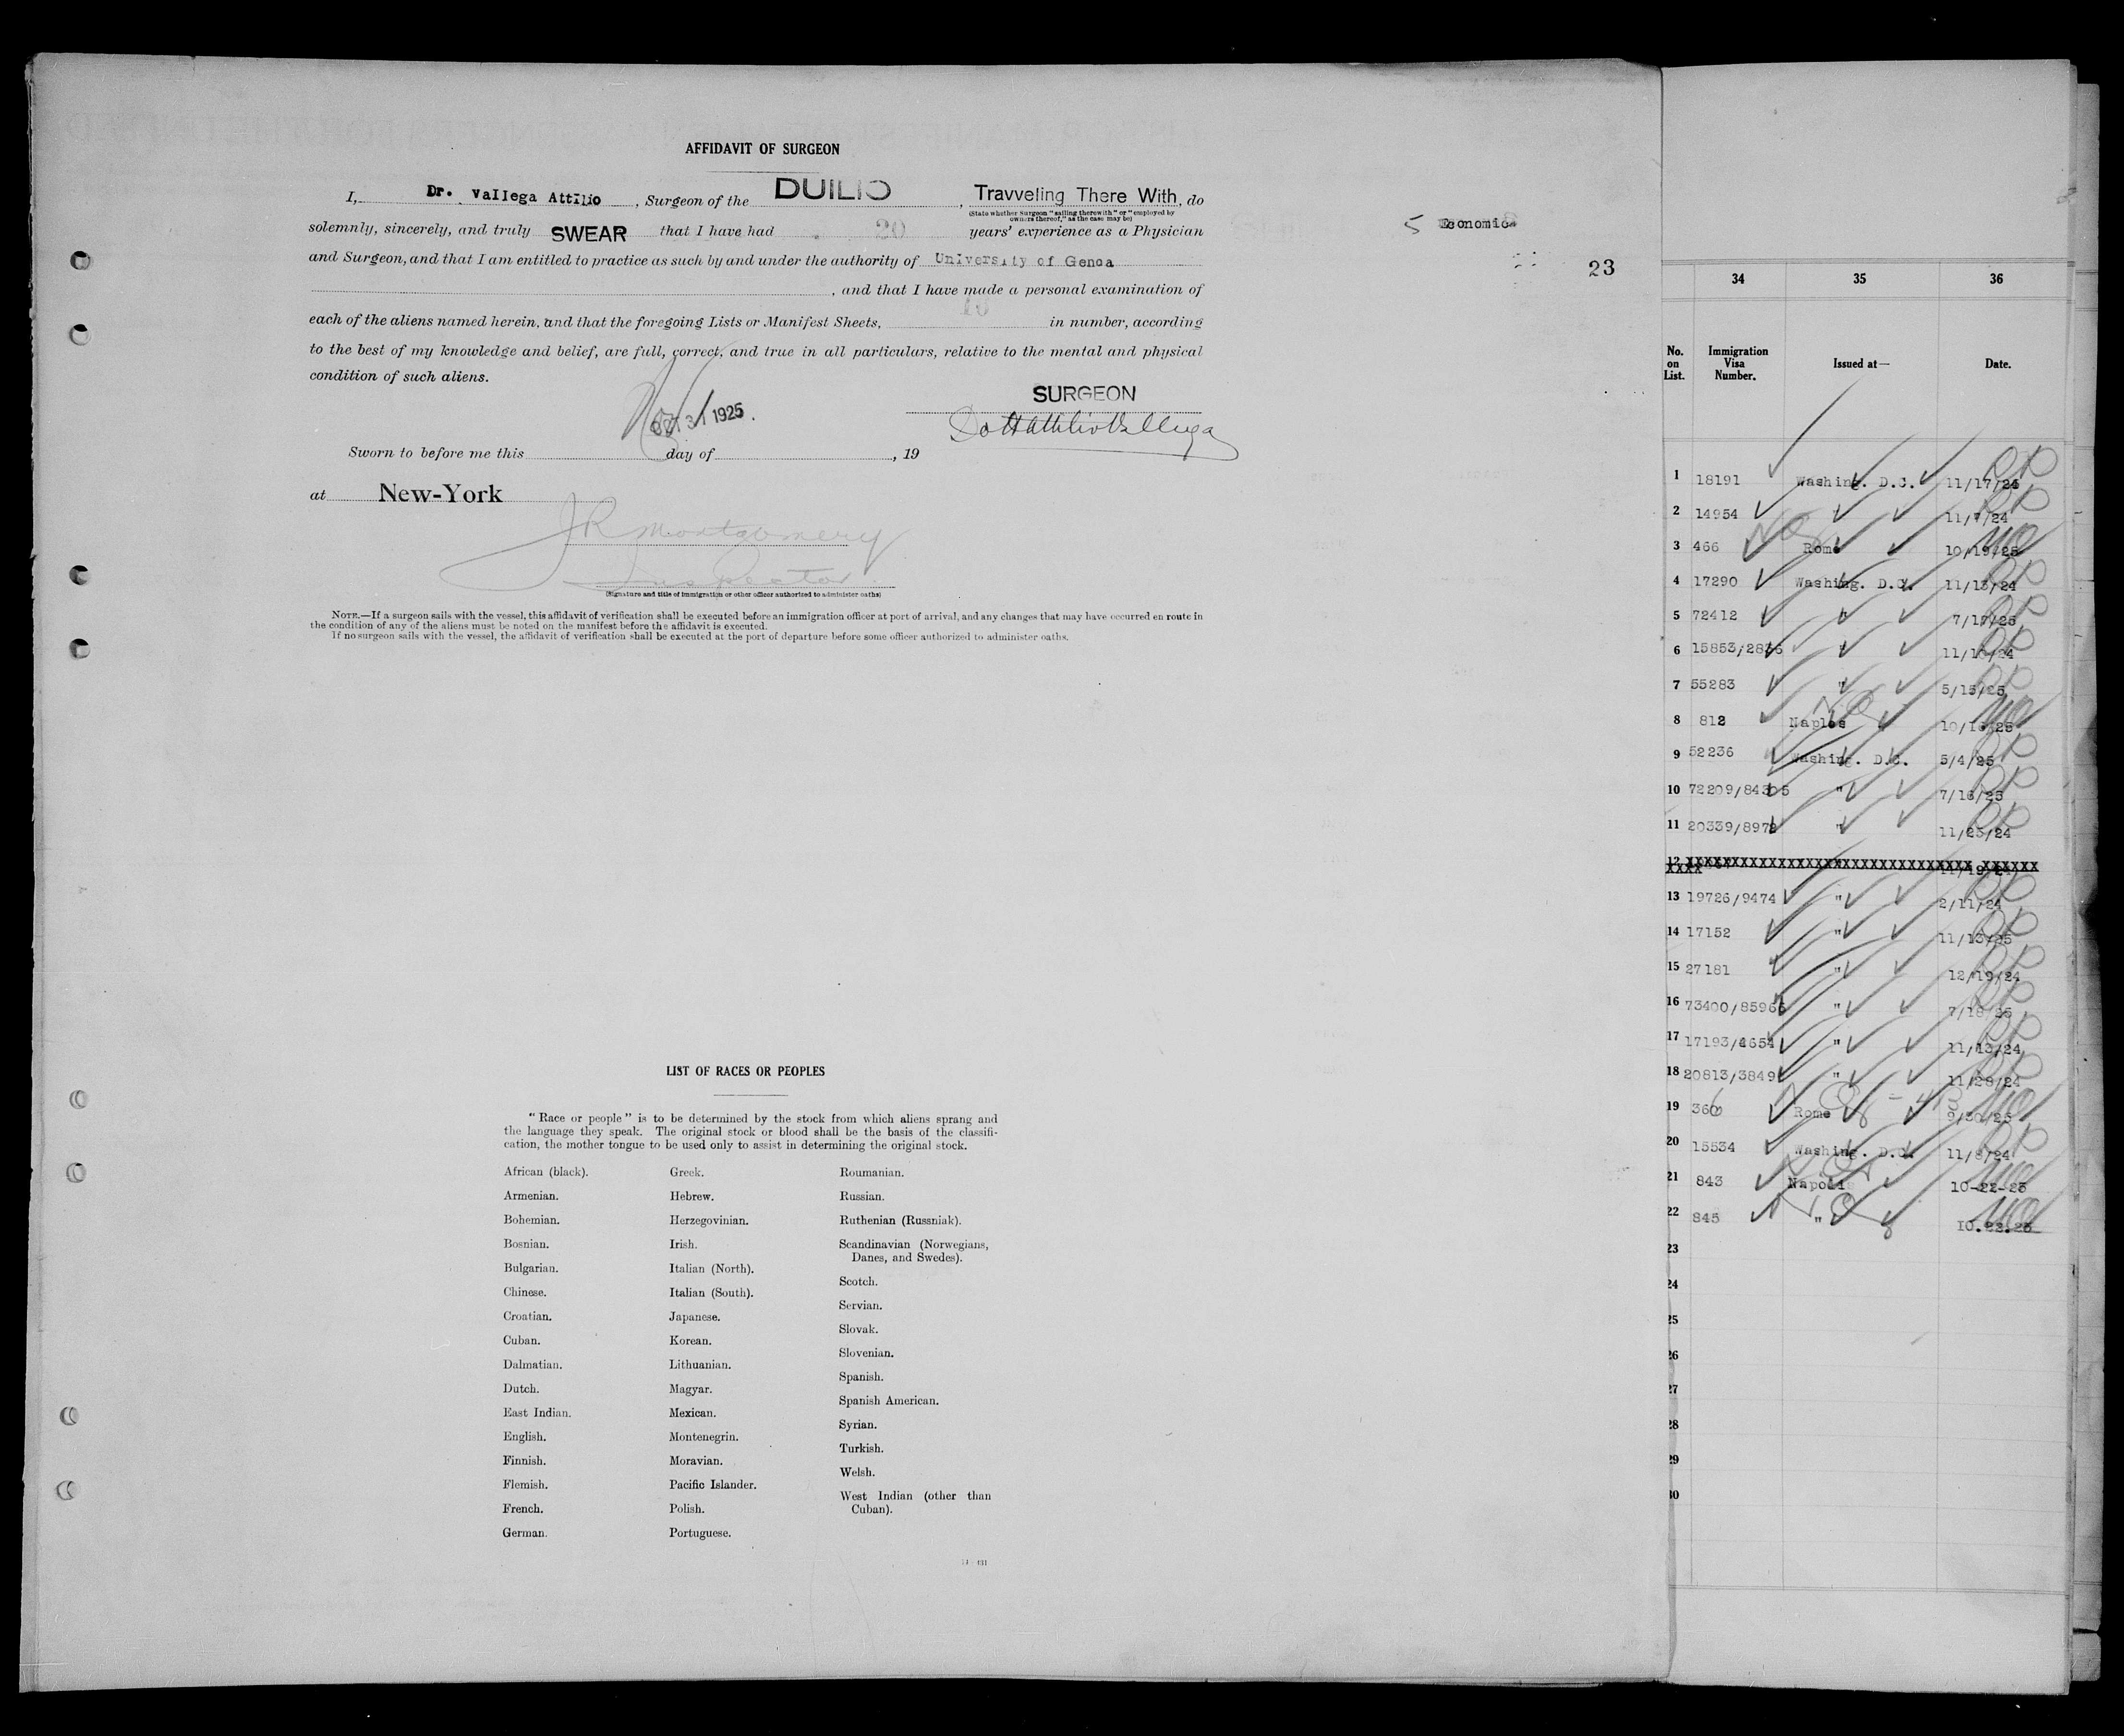 AFFIDAVIT OF SURGEON
I, Dr. Vallega Attilio, Surgeon of the DUILIO, Travveling There With, do
(State whether Surgeon "sailing therewith" or "employed by
owners thereof," as the case may be)
solemnly, sincerely, and truly SWEAR that I have had 20 years' experience as a Physician
and Surgeon, and that I am entitled to practice as such by and under the authority of University of Genoa
, and that I have made a personal examination of
each of the aliens named herein, and that the foregoing Lists or Manifest Sheets, in number, according
to the best of my knowledge and belief, are full, correct, and true in all particulars, relative to the mental and physical
condition of such aliens.
SURGEON
1925.
Sworn to before me this day of , 19
at New-York
JR Montgomery
Inspector
(Signature and title of immigration or other officer authorized to administer oaths)
NOTE.—If a surgeon sails with the vessel, this affidavit of verification shall be executed before an immigration officer at port of arrival, and any changes that may have occurred en route in
the condition of any of the aliens must be noted on the manifest before the affidavit is executed.
If no surgeon sails with the vessel, the affidavit of verification shall be executed at the port of departure before some officer authorized to administer oaths.
5 Economica
23
LIST OF RACES OR PEOPLES
"Race or people" is to be determined by the stock from which aliens sprang and
the language they speak. The original stock or blood shall be the basis of the classifi-
cation, the mother tongue to be used only to assist in determining the original stock.
African (black).
Armenian.
Bohemian.
Bosnian.
Bulgarian.
Chinese.
Croatian.
Cuban.
Dalmatian.
Dutch.
East Indian.
English.
Finnish.
Flemish.
French.
German.
Greek.
Hebrew.
Herzegovinian.
Irish.
Italian (North).
Italian (South).
Japanese.
Korean.
Lithuanian.
Magyar.
Mexican.
Montenegrin.
Moravian.
Pacific Islander.
Polish.
Portuguese.
Roumanian.
Russian.
Ruthenian (Russniak).
Scandinavian (Norwegians,
Danes, and Swedes).
Scotch.
Servian.
Slovak.
Slovenian.
Spanish.
Spanish American.
Syrian.
Turkish.
Welsh.
West Indian (other than
Cuban).
34 35 36
No.
on
List.
Immigration
Visa
Number.
Issued at—
Date.
1 18191 Washing. D.C. 11/17/24
2 14954 11/7/24
3 466 Rome 10/19/25
4 17290 Washing. D.C. 11/13/24
5 72412 "
6 " 
7 55283 " 5/15/25
8 812 Naples
9 52236 Washing. D.C. 5/4/25
10 72209/84305 " 7/16/25
11 " 11/25/24
12 XXXXXXXXXXXXXXXXXXXXXXXXXXXXXXXX XXXXXX
13 19726/9474 " 2/11/24
14 17152 " 11/13/25
15 27181 " 12/19/24
16 " 7/18/25
17 " 11/13/24
18 " 11/28/24
19 Rome 9/30/25
20 15534 Washing. D.C. 11/8/24
21 843 Napoli 10-22-25
22 845 " 10.22.25
23
24
25
26
27
28
29
30